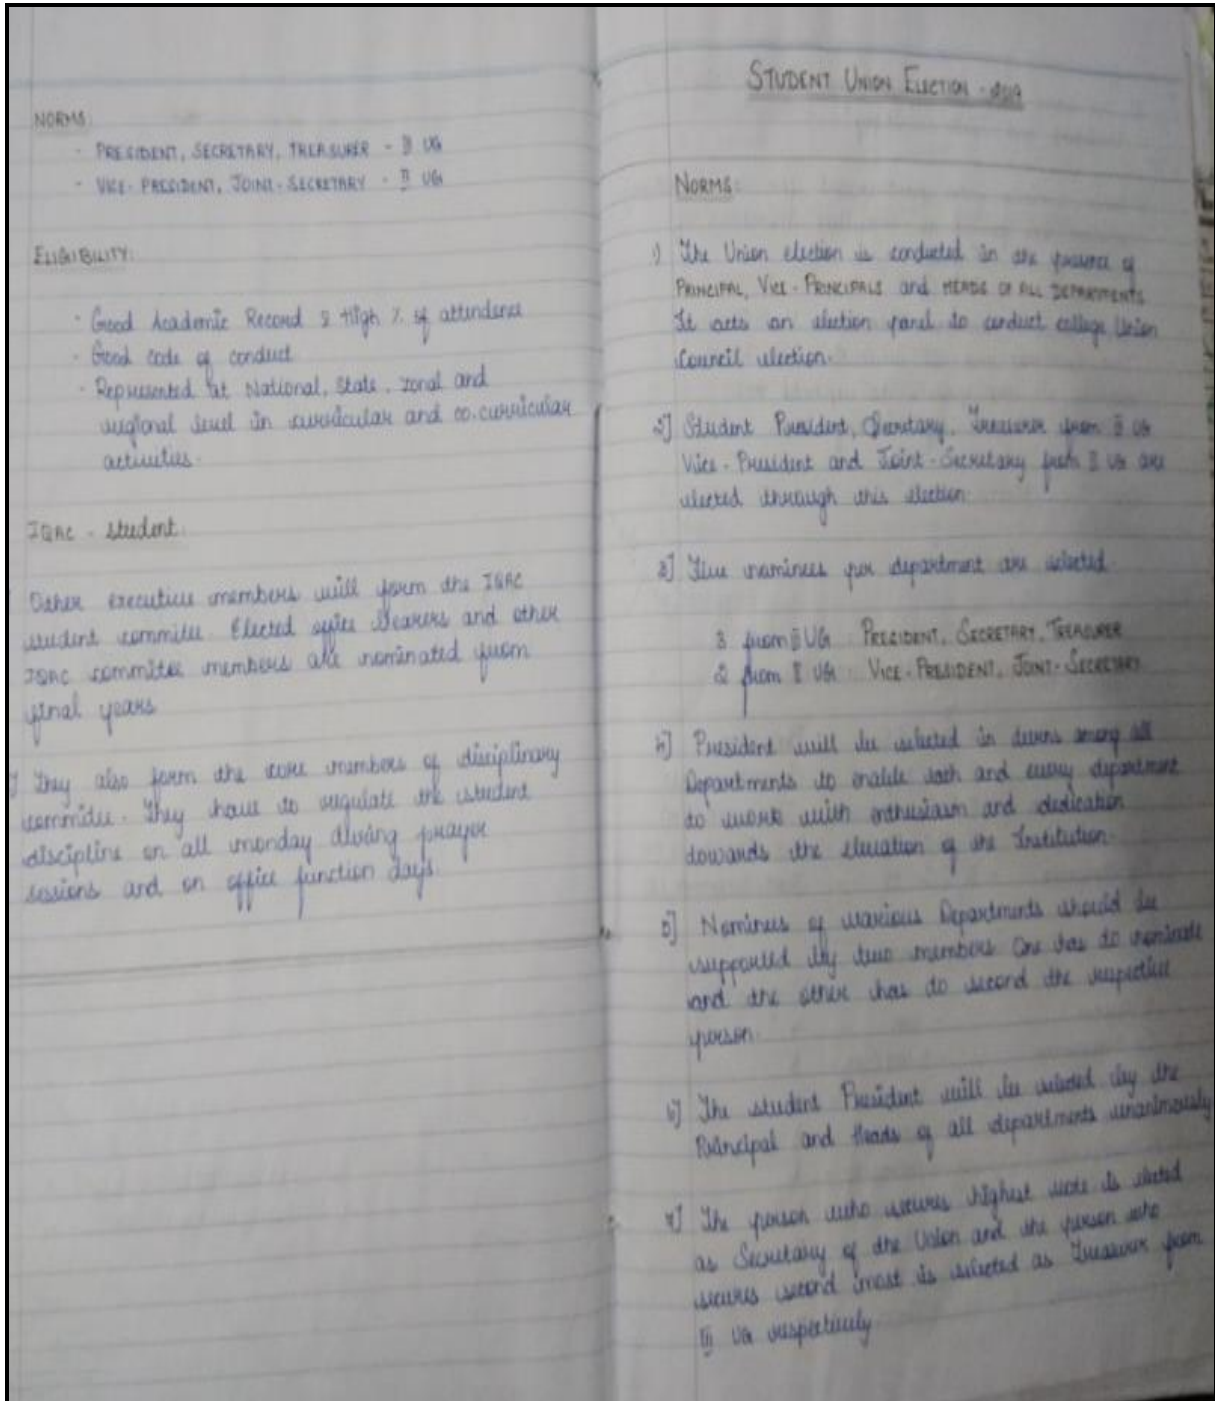 NORMS:
- PRESIDENT, SECRETARY, TREASURER - III UG
- VICE-PRESIDENT, JOINT-SECRETARY - II UG
ELIGIBILITY:
- Good Academic Record & High % of attendence
- Good code of conduct
- Represented at National, State, zonal and
regional level in curricular and co.curricular
activities.
IQAC - student:
Other executive members will form the IQAC
student commitee. Elected office bearers and other
IQAC commitee members are nominated from
final years
They also form the core members of disciplinary
commitee. They have to regulate the student
discipline on all monday during prayer
sessions and on office function days.
STUDENT UNION ELECTION -
NORMS:
1) The Union election is conducted in the presence of
PRINCIPAL, VICE-PRINCIPALS and HEADS OF ALL DEPARTMENTS
It acts an election panel to conduct college Union
Council election.
2] Student President, Secretary, Treasurer from III UG
Vice-President and Joint-Secretary from II UG are
elected through this election.
3] Five nominees per department are selected.
3 from III UG : PRESIDENT, SECRETARY, TREASURER
2 from II UG : VICE-PRESIDENT, JOINT-SECRETARY
4] President will be selected in turns among all
Departments to enable each and every department
to work with enthusiasm and dedication
towards the elevation of the Institution.
5] Nominees of various Departments should be
supported by two members One has to nominate
and the other has to second the respective
person.
6] The student President will be selected by the
Principal and Heads of all departments unanimously
7] The person who secures highest vote is elected
as Secretary of the Union and the person who
secures second most is selected as Treasurer from
III UG respectively